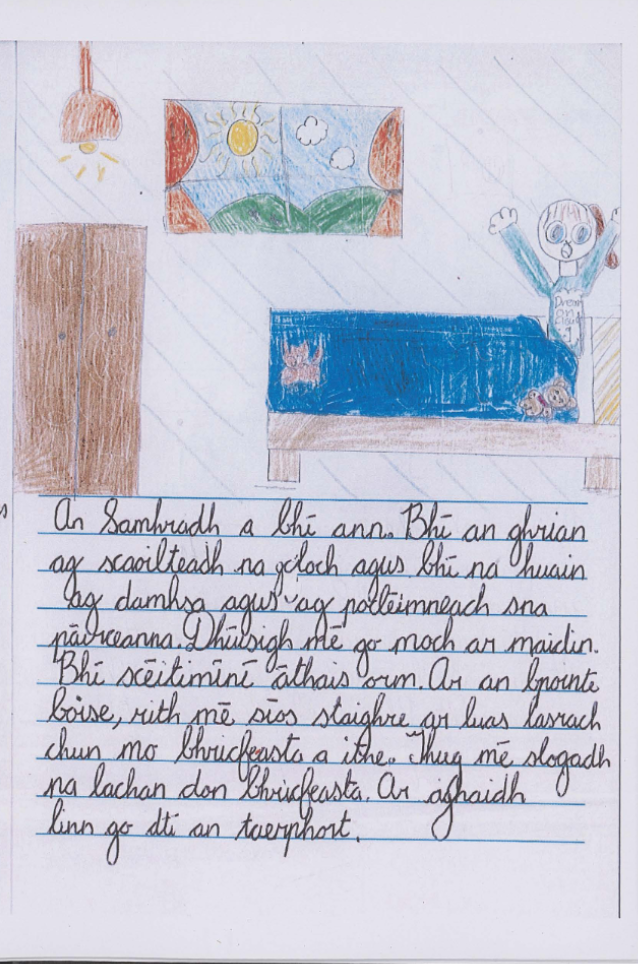 An Samhradh a bhī ann. Bhī an ghrian
ag scaoilteadh na gcloch agus bhī na huain
ag damhsa agus ag pocléimneach sna
pāirceanna. Dhūisigh mē go moch ar maidin.
Bhī scēitimīnī āthais orm. Ar an bpointe
bōise, rith mē sīos staighre ar luas lasrach
chun mo bhricfeasta a ithe. Thug mē slogadh
na lachan don bhricfeasta. Ar aghaidh
linn go dtī an taerphort.